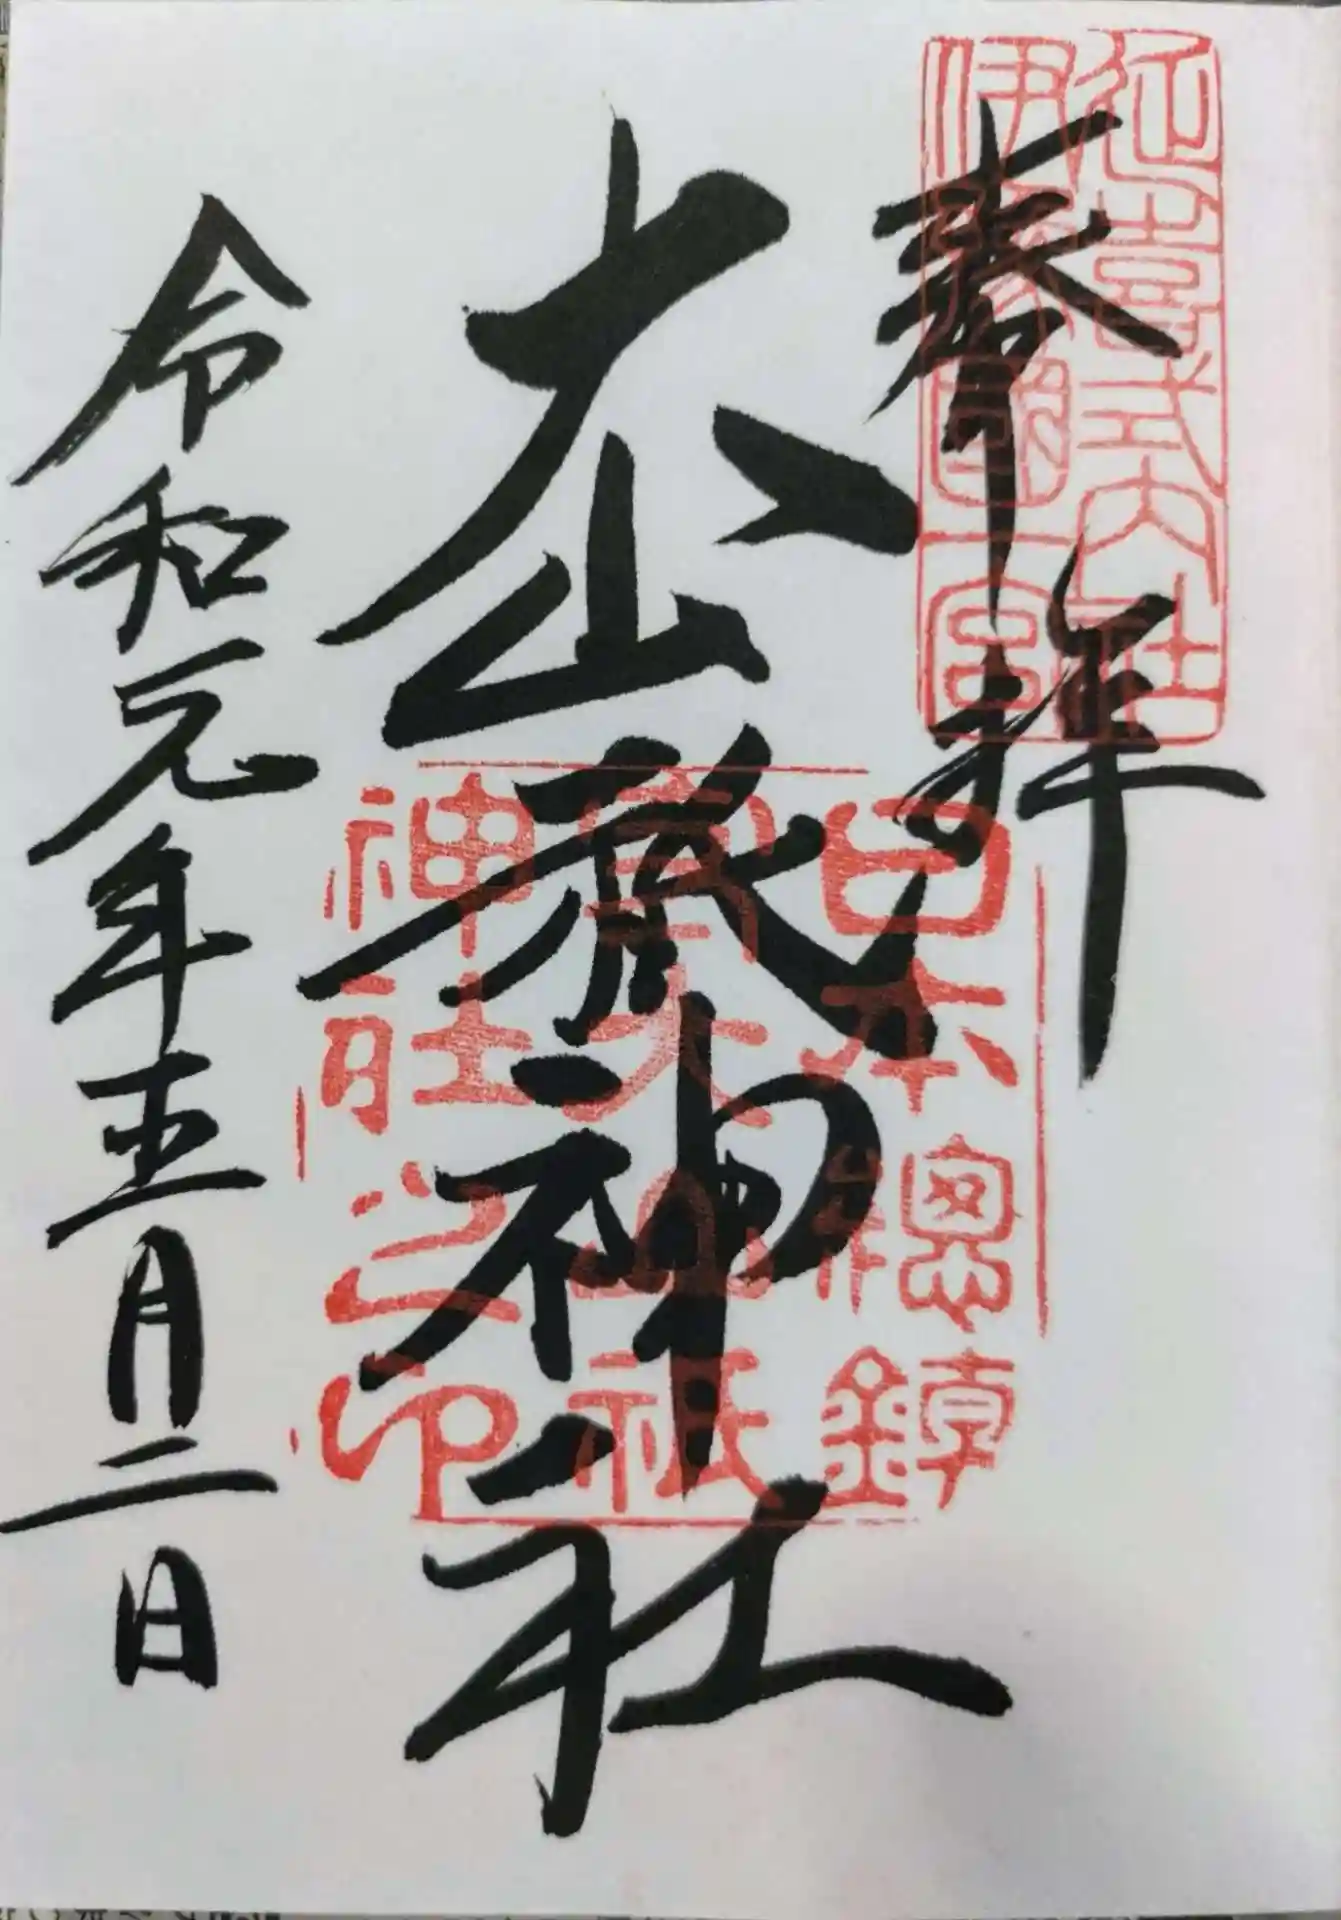 延喜式内社
伊豫國一宮
奉拝
大山祇神社
日本總鎮
守大山祇
神社之印
令和元年五月二日